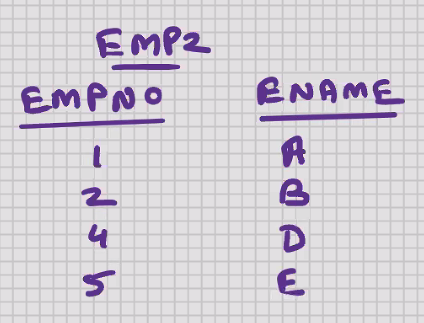 EMP2
EMPNO ENAME
1 A
2 B
4 D
5 E